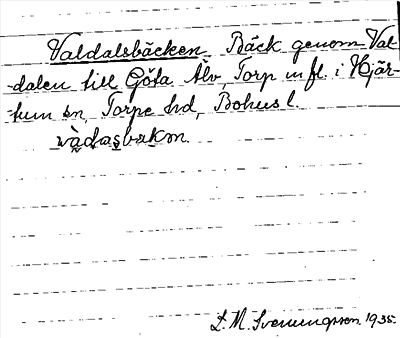 Valdalsbäcken. Bäck genom Val-
-dalen till Göta Älv, Torp m fl. i Hjär-
-tum sn, Torpe hd, Bohusl.
vàdasbækm.
L. M. Svenungsson. 1935.